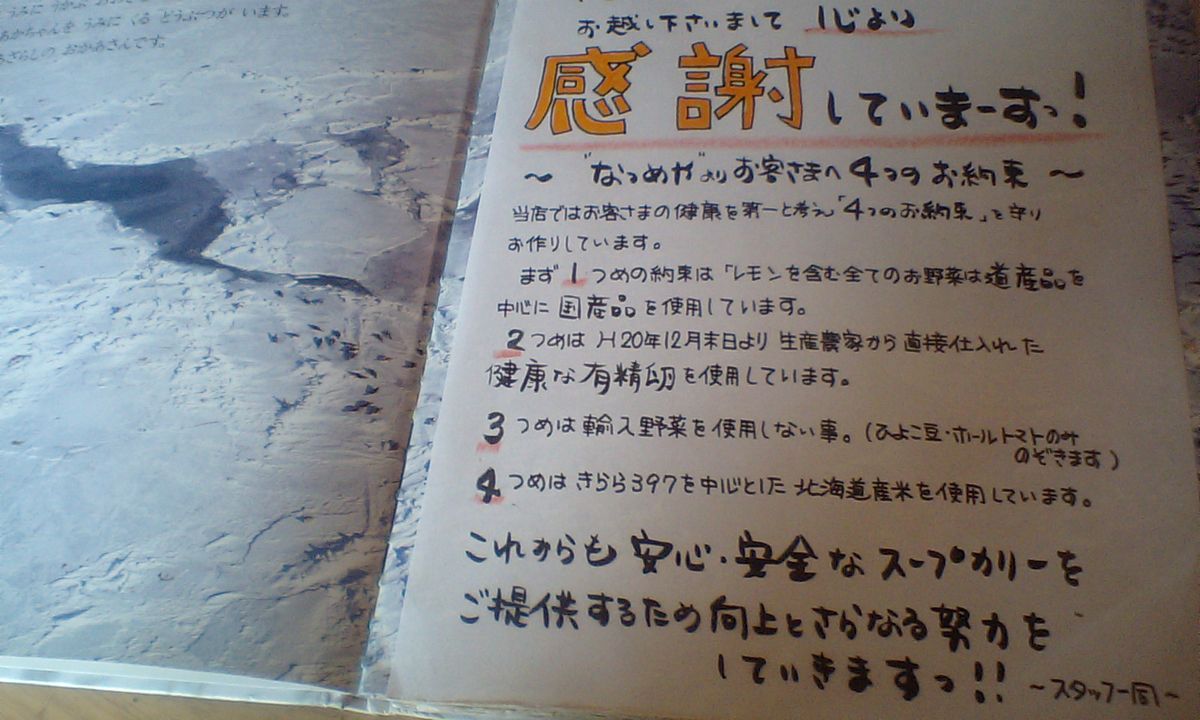 あかちゃんを うみに くる どうぶつが います。
あざらしの おかあさんです。
お越し下さいまして 心より
感謝していまーすっ!
～"なつめや"よりお客さまへ4つのお約束～
当店ではお客さまの健康を第一と考え「4つのお約束」を守り
お作りしています。
まず1つめの約束は「レモンを含む全てのお野菜は道産品を
中心に国産品を使用しています。
2つめはH20年12月末日より生産農家から直接仕入れた
健康な有精卵を使用しています。
3つめは輸入野菜を使用しない事。(ひよこ豆・ホールトマトのみ
のぞきます)
4つめはきらら397を中心とした北海道産米を使用しています。
これからも安心・安全なスープカリーを
ご提供するため向上とさらなる努力を
していきますっ!!
～スタッフ一同～